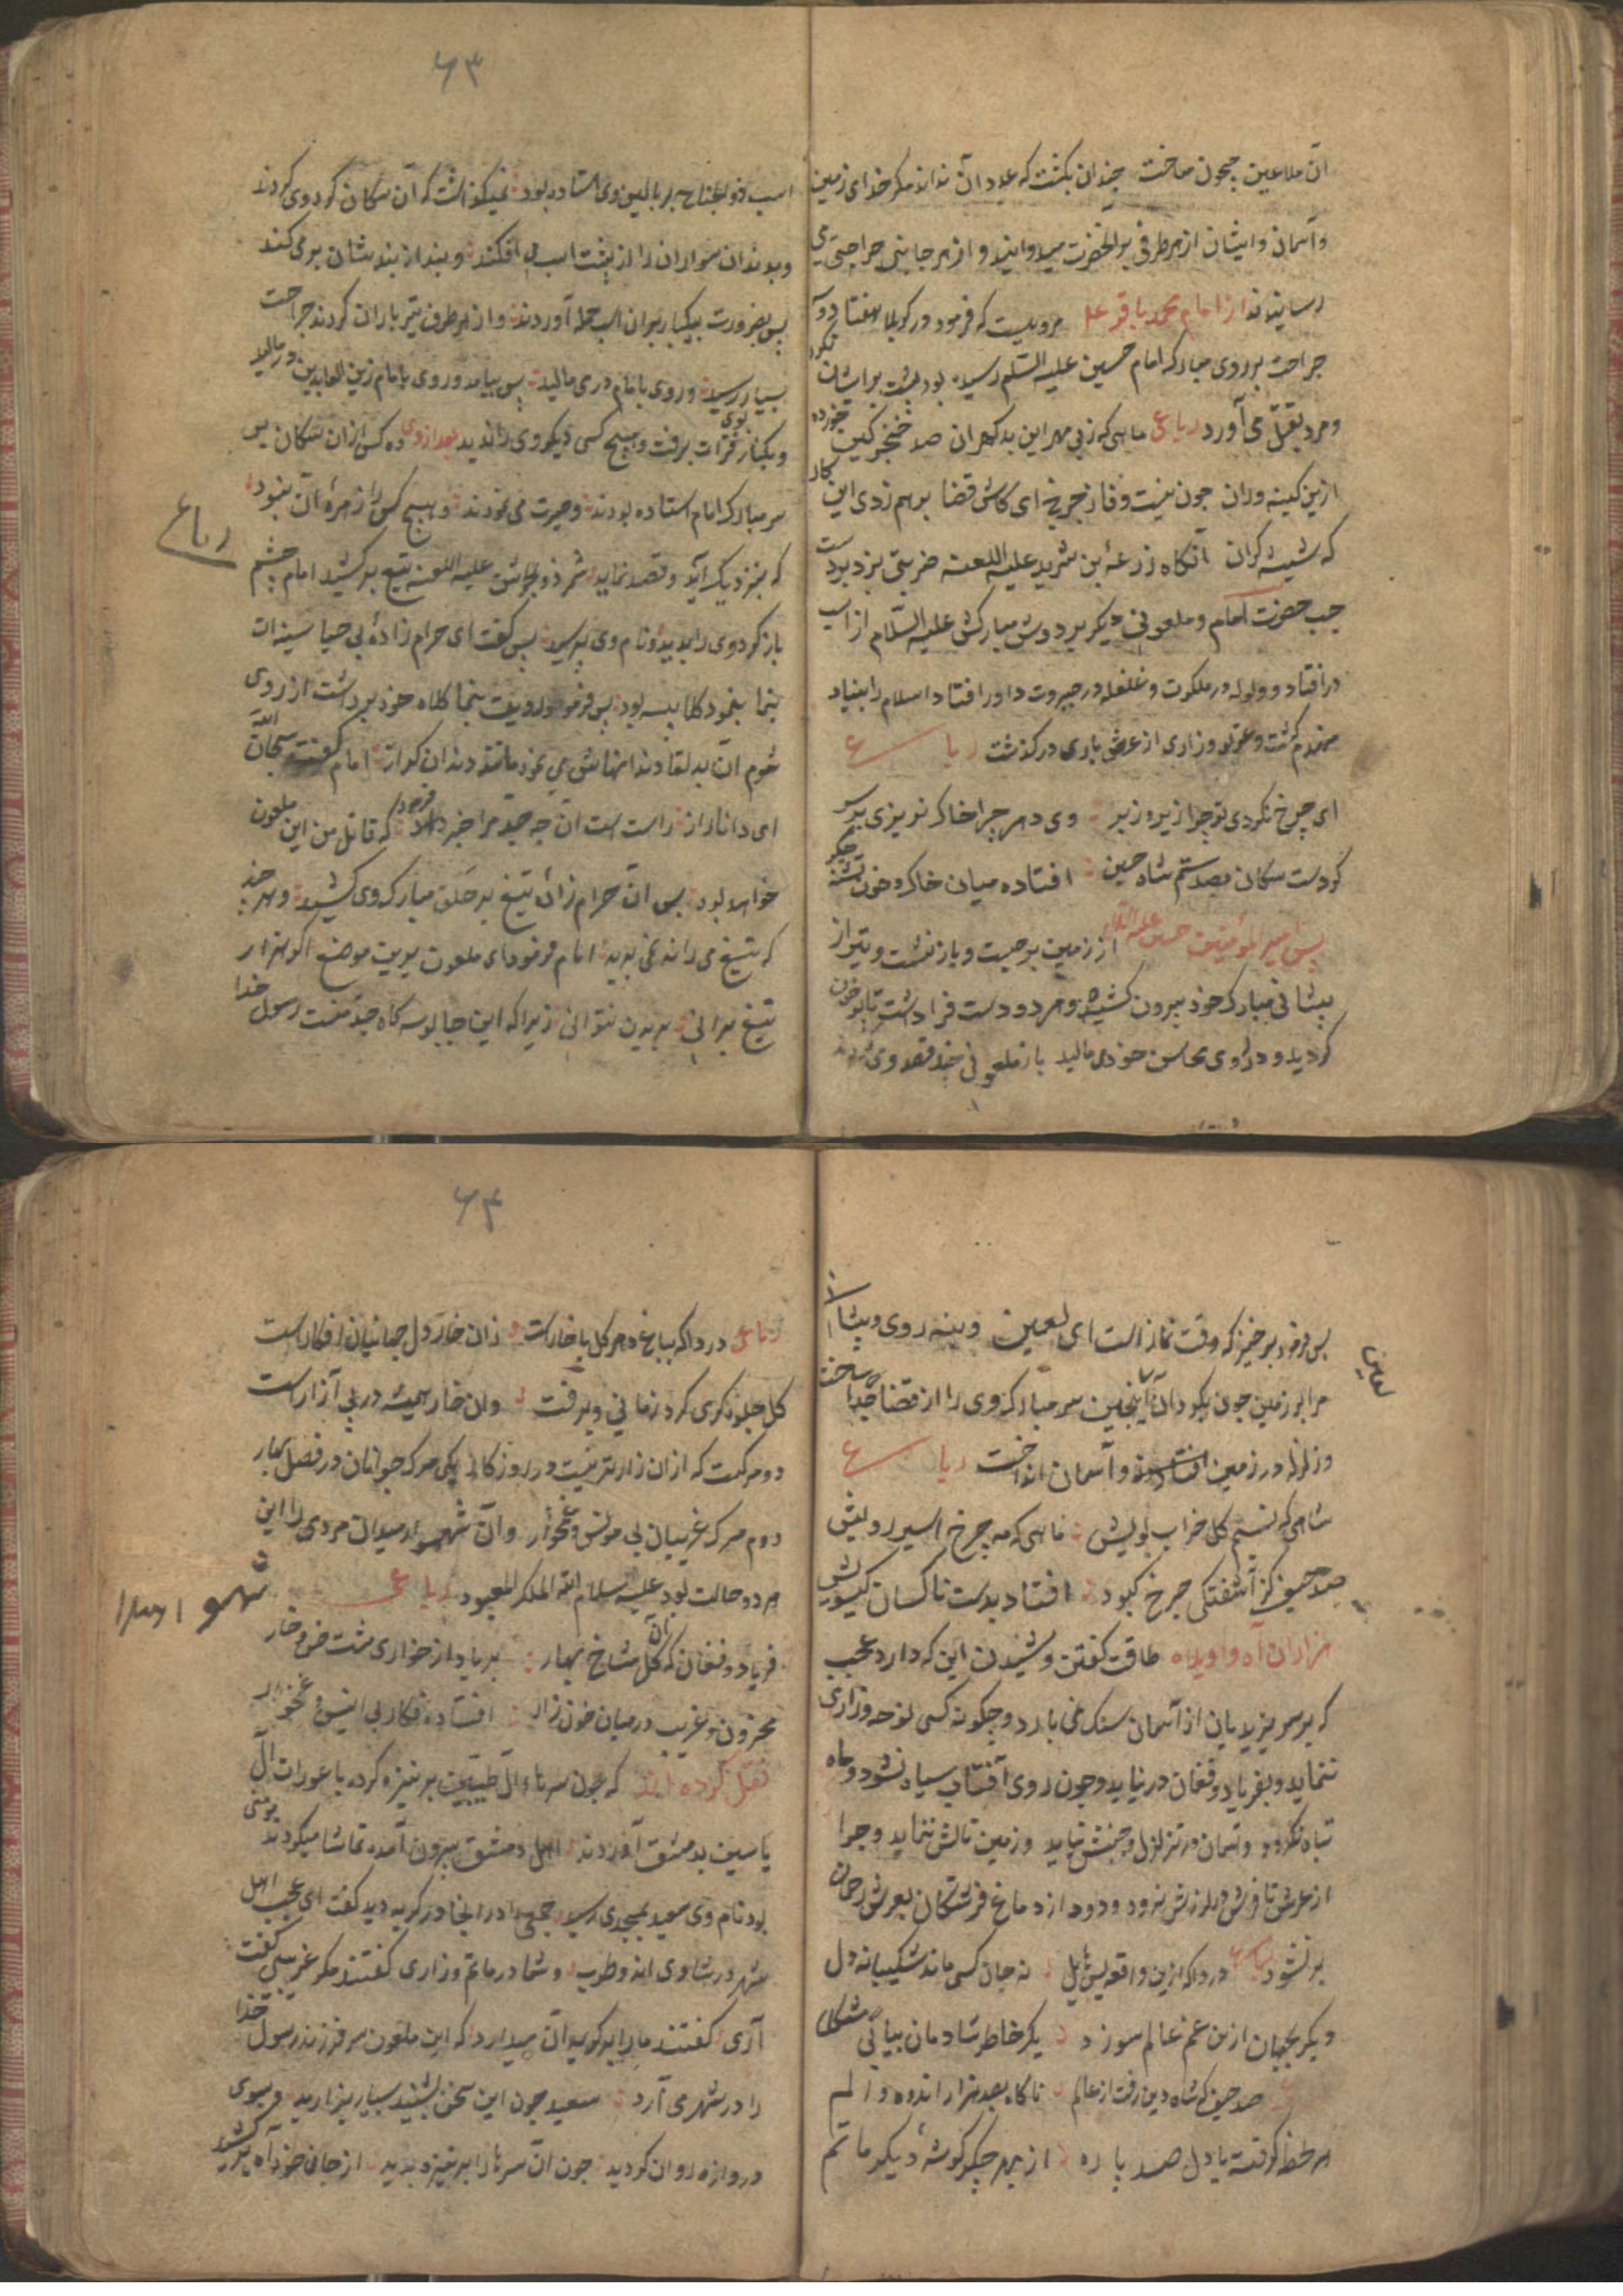 آن ملاعین جیحون ساخت چندان بکشت که عدد آن نداند مکر خدای زمین
و آسمان و ایشان از هر طرفی بر آنحضرت میدوانید و از هر جانبی جراحتی می
رسانیدند از امام محمد باقر علیه مرویست که فرمود در کربلا هفتاد و دو
جراحت بر روی مبارک امام حسین علیه السلم رسیده بود پشت بر ایشان نکرد
و مرد بقتل می آورد رباعی ماهی که ز بی مهر این بدکهران صد خنجر کین خورده
ازین کینه وران چون نیست وفا ز چرخ ای کاش قضا برهم زدی این کار
که شیشه کران آنکاه زرعه بن شرید علیه اللعنه ضربتی بزد بر دست
چپ حضرت امام و ملعونی دیکر بر دوش مبارکش علیه السّلام از اسب
درافتاد و ولوله در ملکوت و غلغله در جبروت درافتاد اسلام را بنیاد
منهدم کشت و زاری از عرش باری درکذشت رباعی
ای چرخ نکردی تو چرا زیر و زبر وی دهر چرا خاک نریزی بر سر
کز دست سکان بصد ستم شاه حسین افتاده میان خاک و خون تشنه جکر
پس امیر المؤمنین حسین علیه السلام از زمین برجست و باز نشست و تیر از
پیشانی مبارک خود بیرون کشید و هر دو دست فراداشت تا پر خون
کردید و در روی محاسن خود می مالید باز ملعونی چند قصد وی کردند
۶۳
اسب ذو الجناح بر بالین وی استاده بود نمیکذاشت که آن سکان کرد وی کردند
و بدندان سواران را از پشت اسب می افکند و بند از بند شان برمی کند
پس بضرورت بیکبار بر آن اسب حمله آوردند و از هر طرف تیر باران کردند جراحت
بسیار رسید و روی با امام در می مالید پس بیامد و روی با امام زین العابدین در مالید
و بکنار فرات برفت و هیچ کسی دیکر وی را ندید بعد از وی ده کس از آن سکان بر
سر مبارک امام استاده بودند و حیرت می نمودند و هیچ کس را زهره آن نبود
رباعی
که بنزدیک آید و قصد نماید شمر ذو الجوشن علیه اللعنه تیغ برکشید امام چشم
باز کرد وی را بدید و نام وی پرسید پس کفت ای حرام زاده بی حیا سینه ات
بنما بنمود کلا پیسه بود پس فرمود رویت بنما کلاه خود برداشت از روی
شوم آن بد لقا دندانهاش می نمود مانند دندان کراز امام کفت سبحان الله
ای دانا راز راست است آن چه جدّ مرا خبر داد فرمود که قاتل من این ملعون
خواهد بود پس آن حرام زاده تیغ بر حلق مبارک وی کشید و هر چند
که تیغ می راند نمی برید امام فرمود ای ملعون بدین موضع اکر هزار
تیغ برانی بریدن نتوانی زیرا که این جا بوسه کاه جدّ منست رسول خدا
پس فرمود برخیز که وقت نماز است ای لعین و بنه روی و پیشانی
لعین
مرا بر زمین چون بکرد آن اینچنین سر مبارک وی را از قفا جدا ساخت
و زلزله در زمین افتاد و آسمان انداخت رباعی
شاهی که نسیم کل خراب بویش ماهی که مه چرخ اسیر رویش
صد حیف کز آشفتکی چرخ کبود افتاد بدست ناکسان کیسویش
هزاران آه و اویلاه طاقت کفتن و شنیدن این که دارد عجب
که بر سر یزیدیان از آسمان سنک نمی بارد و چکونه کسی نوحه و زاری
ننماید و بفریاد و فغان در نیاید و چون روی آفتاب سیاه نشود و ماه
تباه نکردد و آسمان در تزلزل و جنبش نیاید و زمین نالش ننماید و چرا
از عرش تا فرش در لرزش نرود و دود از دماغ فرشتکان بعرش رحمان
بر نشود رباعی دردا که ازین واقعه نه جان کسی ماند شکیبا نه دل
دیکر بجهان ازین غم عالم سوز یک خاطر شادمان بیابی مشکل
صد حیف که شاه دین رفت از عالم ناکاه بصد هزار اندوه و الم
هر لحظه کرفته با دل صد پاره از بهر جکر کوشهٔ دیکر ماتم
۶۴
رباعی دردا که بباغ دهر کل با خارست زان خار دل جهانیان افکارست
کل جلوه کری کرد زمانی و برفت وان خار همیشه در پی آزارست
دو مرکست که از آن زارتر نیست در روزکار یکی مرک جوانان در فصل بهار
دوم مرک غریبان بی مونس و غمخوار و آن شهسوار میدان مردی را این
هر دو حالت بود علیه سلام الله الملک المعبود رباعی
فریاد و فغان که آن کل شاخ بهار بر باد از خواری مشت خس و خار
محزون و غریب در میان خون زار افتاده فکار بی انیس و غمخوار
نقل کرده اند که چون سرهاء آل طیبین بر نیزه کرده با عورات آل
یاسین بدمشق آوردند اهل دمشق بیرون آمده تماشا میکردند مومنی
بود نام وی سعید بمسجدی رسید جمعی را در آنجا در کریه دید کفت ای عجب اهل
شهر در شادی اند و طرب و شما در ماتم و زاری کفتند مکر غریبی کفت
آری کفتند ما را بر کویدان میدارد که این ملعون سر فرزند رسول خدا
را در شهر می آرد سعید چون این سخن بشنید بسیار بزارید و بسوی
دروازه روان کردید چون آن سرها را بر نیزه بدید از جان خود آه برکشید